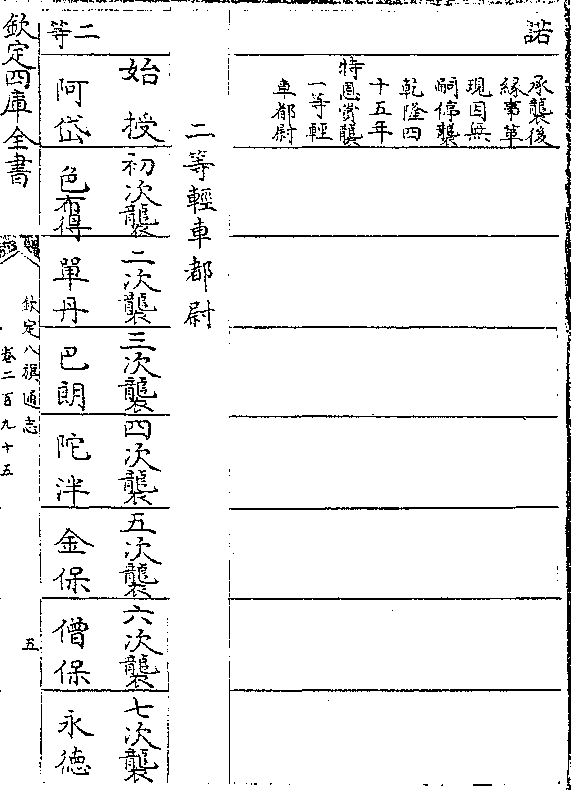 諾
承襲後
緣事革
現因無
嗣停襲
乾隆四
十五年
特恩賞襲
一等輕
車都尉
二等輕車都尉
始授
初次襲
二次襲
三次襲
四次襲
五次襲
六次襲
七次襲
二等
阿岱
色布得
單丹
巴朗
陀泮
金保
僧保
永德
欽定四庫全書
欽定八旗通志
卷二百九十五
五